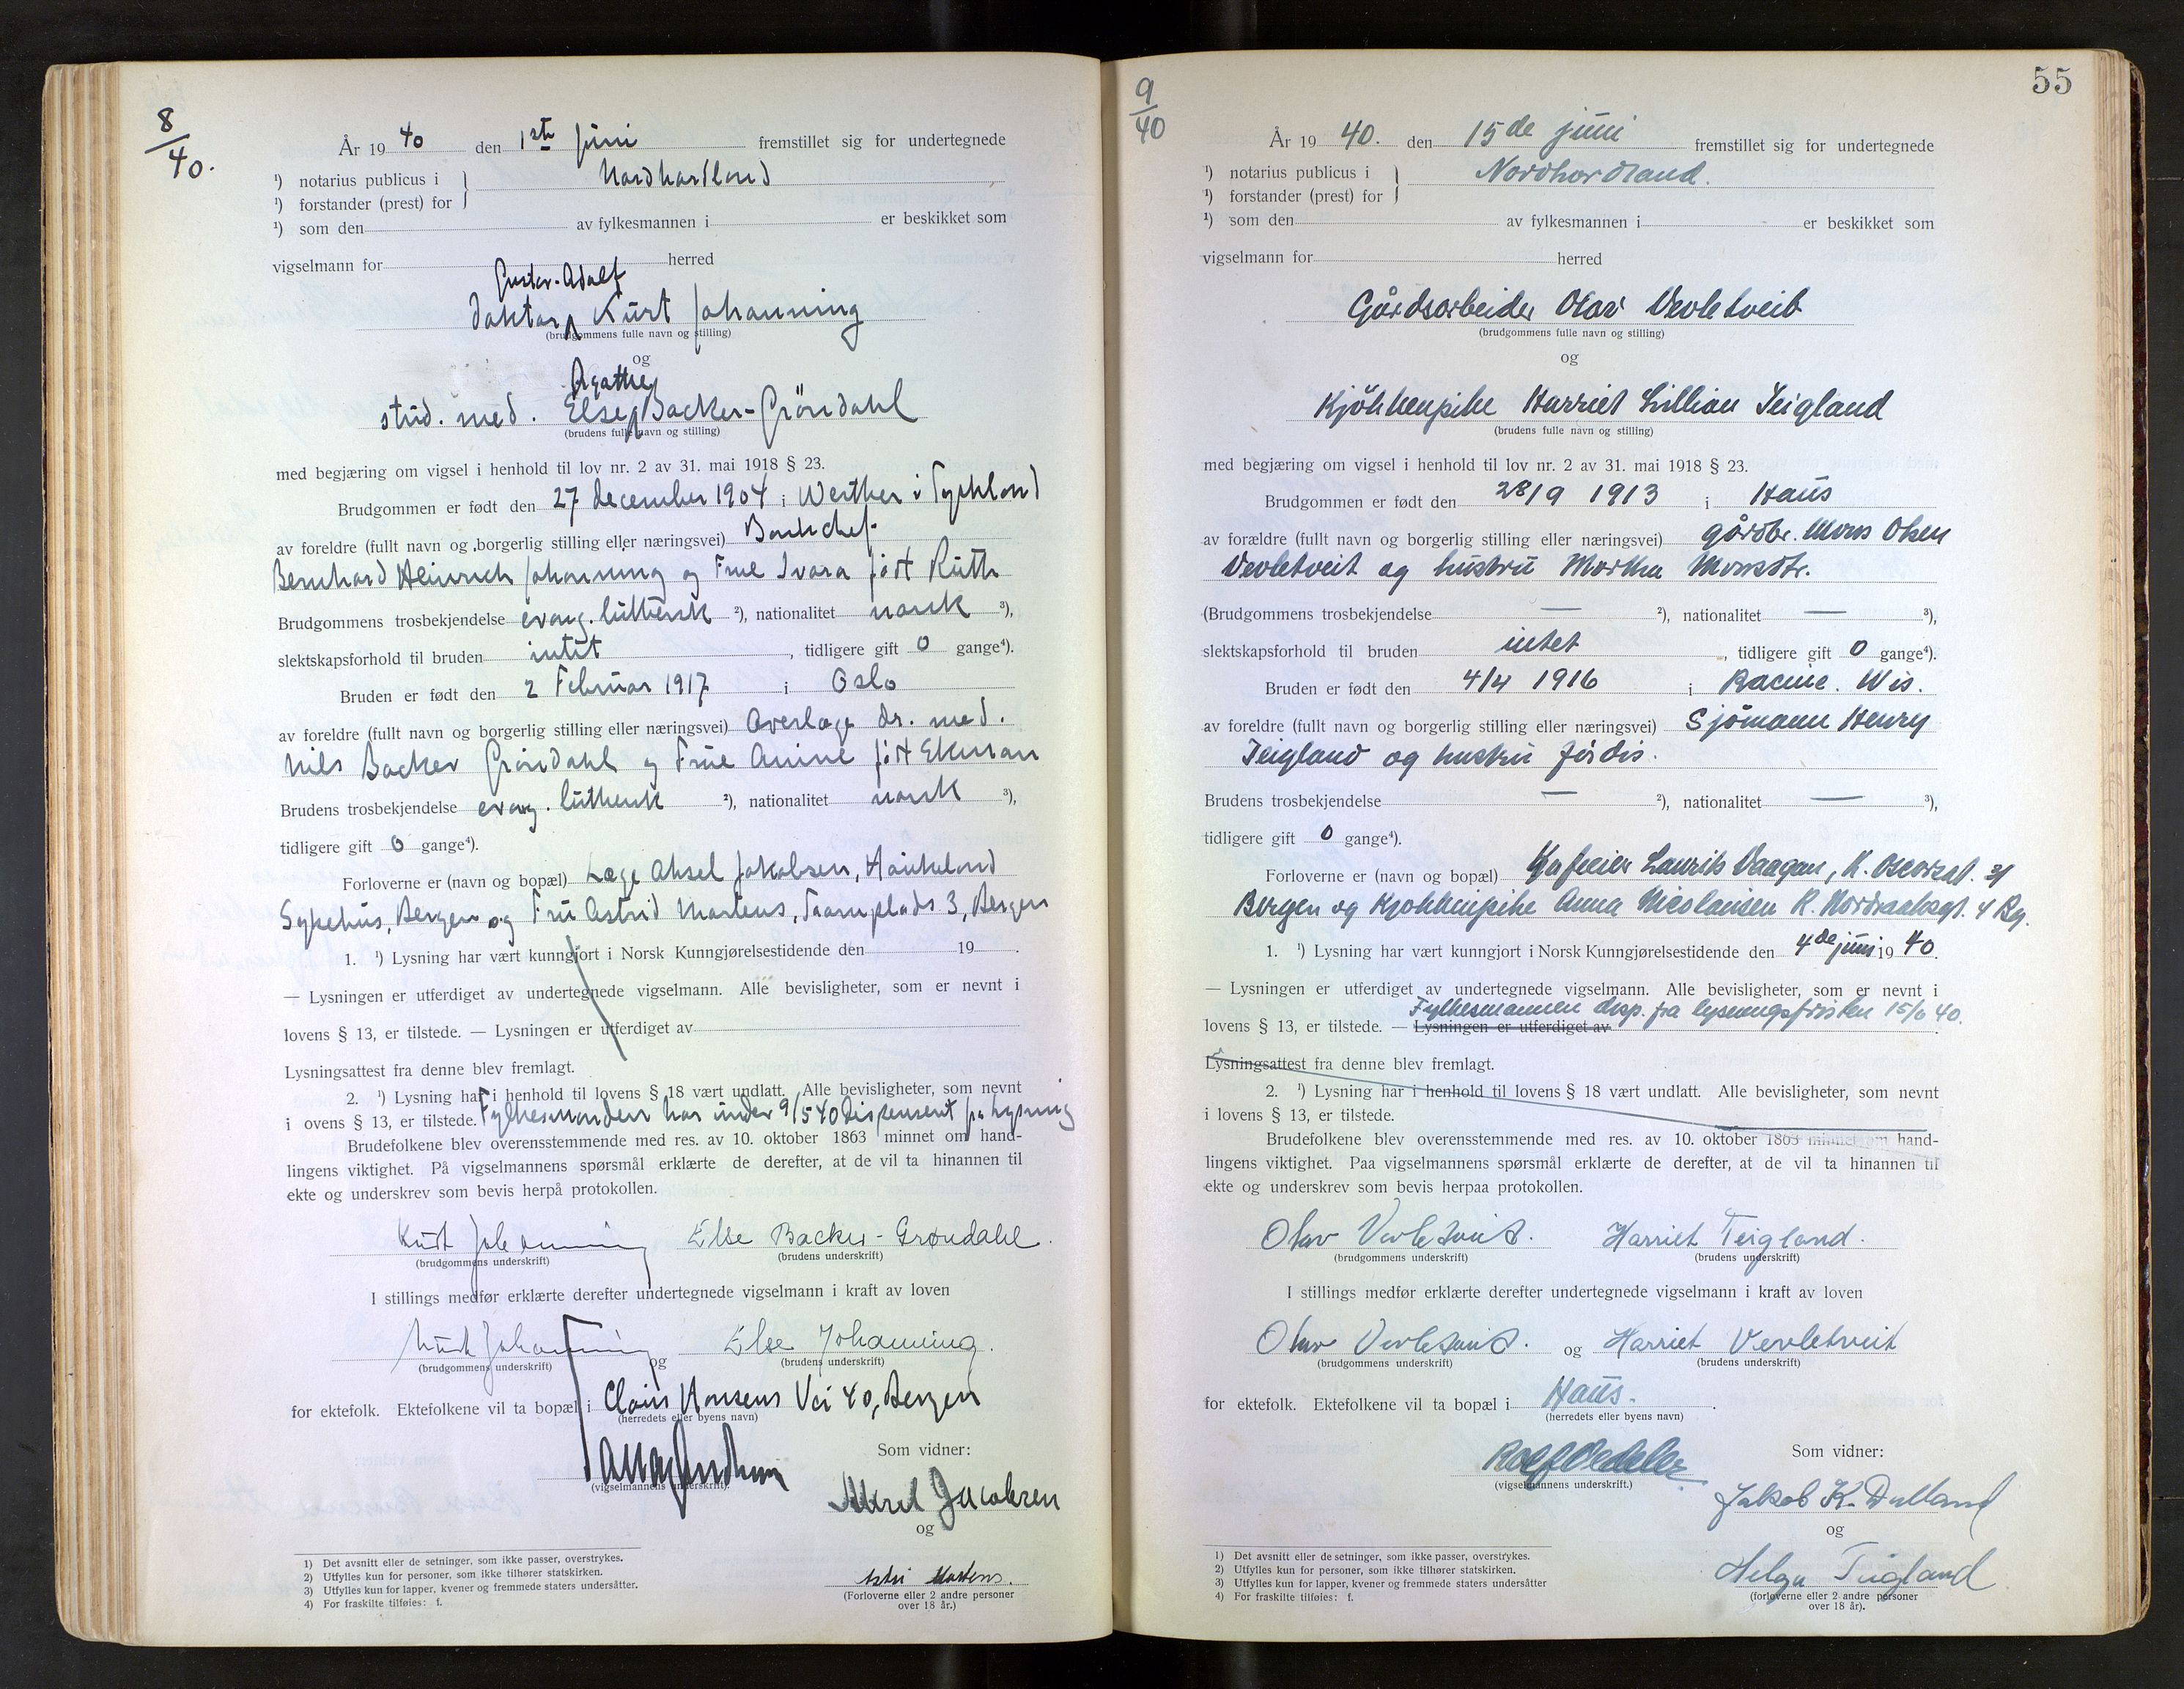 8/40.
År 1940 den 1ste juni fremstillet sig for undertegnede
¹) notarius publicus i } Nordhordland
¹) forstander (prest) for
¹) som den av fylkesmannen i er beskikket som
vigselmann for herred
Gustav-Adolf
doktor Kurt Johanning
(brudgommens fulle navn og stilling)
og
Agathe
stud. med. Else Backer-Gröndahl
(brudens fulle navn og stilling)
med begjæring om vigsel i henhold til lov nr. 2 av 31. mai 1918 § 23.
Brudgommen er født den 27 december 1904 i Werther i Tyskland
av foreldre (fullt navn og borgerlig stilling eller næringsvei) Bankchef
Bernhard Heinrich Johanning og Frue Ivara født Ruth
Brudgommens trosbekjendelse evang. luthersk ²), nationalitet norsk ³),
slektskapsforhold til bruden intet, tidligere gift 0 gange⁴).
Bruden er født den 2 Februar 1917 i Oslo
av foreldre (fullt navn og borgerlig stilling eller næringsvei) Overlæge dr. med.
Nils Backer Gröndahl og Frue Anine født Ekman
Brudens trosbekjendelse evang. luthersk ²), nationalitet norsk ³),
tidligere gift 0 gange⁴).
Forloverne er (navn og bopæl) Læge Aksel Jakobsen, Haukeland
Sykehus, Bergen og Fru Astrid Martens, Tramplads 3, Bergen
1. ¹) Lysning har vært kunngjort i Norsk Kunngjørelsestidende den 19 .
— Lysningen er utferdiget av undertegnede vigselmann. Alle bevisligheter, som er nevnt i
lovens § 13, er tilstede. — Lysningen er utferdiget av
Lysningsattest fra denne blev fremlagt.
2. ¹) Lysning har i henhold til lovens § 18 vært undlatt. Alle bevisligheter, som nevnt
i ovens § 13, er tilstede. Fylkesmanden har under 9/5 40 dispensert fra lysning
Brudefolkene blev overensstemmende med res. av 10. oktober 1863 minnet om hand-
lingens viktighet. På vigselmannens spørsmål erklærte de derefter, at de vil ta hinannen til
ekte og underskrev som bevis herpå protokollen.
Kurt Johanning Else Backer-Grøndahl.
(brudgommens underskrift) (brudens underskrift)
I stillings medfør erklærte derefter undertegnede vigselmann i kraft av loven
Kurt Johanning og Else Johanning.
(brudgommens underskrift) (brudens underskrift)
for ektefolk. Ektefolkene vil ta bopæl i Claus Hansens Vei 40, Bergen
(herredets eller byens navn)
Som vidner:
(vigselmannens underskrift).
Aksel Jacobsen
og
Astri Martens.
(Forloverne eller 2 andre personer
over 18 år.)
1) Det avsnitt eller de setninger, som ikke passer, overstrykes.
2) Utfylles kun for personer, som ikke tilhører statskirken.
3) Utfylles kun for lapper, kvener og fremmede staters undersåtter.
4) For fraskilte tilføies: f.
55
9/40
År 1940. den 15de juni fremstillet sig for undertegnede
¹) notarius publicus i } Nordhordland.
¹) forstander (prest) for
¹) som den av fylkesmannen i er beskikket som
vigselmann for herred
Gårdsarbeider Olav Vevletveit
(brudgommens fulle navn og stilling)
og
Kjökkenpike Harriet Lillian Teigland
(brudens fulle navn og stilling)
med begjæring om vigsel i henhold til lov nr. 2 av 31. mai 1918 § 23.
Brudgommen er født den 28/9 1913 i Haus
av forældre (fullt navn og borgerlig stilling eller næringsvei) gårdbr. Mons Olsen
Vevletveit og hustru Martha Monsdtr.
(Brudgommens trosbekjendelse — ²), nationalitet — ³),
slektskapsforhold til bruden intet, tidligere gift 0 gange⁴).
Bruden er født den 4/4 1916 i Racine. Wis.
av foreldre (fullt navn og borgerlig stilling eller næringsvei) Sjömann Henry
Teigland og hustru Jördis.
Brudens trosbekjendelse — ²), nationalitet — ³),
tidligere gift 0 gange⁴).
Forloverne er (navn og bopæl) Laurits Vaagan, K. Oscarsgt. 31
Bergen og Kjökkenpike Anna Nicolaisen R. Nordraaksgt. 4 Bg.
1. ¹) Lysning har vært kunngjort i Norsk Kunngjørelsestidende den 4de juni 1940.
— Lysningen er utferdiget av undertegnede vigselmann. Alle bevisligheter, som er nevnt i
Fylkesmannen disp. fra lysningsfristen 15/6 40.
lovens § 13, er tilstede. — Lysningen er utferdiget av
Lysningsattest fra denne blev fremlagt.
2. ¹) Lysning har i henhold til lovens § 18 vært undlatt. Alle bevisligheter, som nevnt
i lovens § 13, er tilstede.
Brudefolkene blev overensstemmende med res. av 10. oktober 1863 minnet om hand-
lingens viktighet. Paa vigselmannens spørsmål erklærte de derefter, at de vil ta hinannen til
ekte og underskrev som bevis herpaa protokollen.
Olav Vevletveit. Harriet Teigland.
(brudgommens underskrift) (brudens underskrift)
I stillings medfør erklærte derefter undertegnede vigselmann i kraft av loven
Olav Vevletveit. og Harriet Vevletveit
(brudgommens underskrift) (brudens underskrift)
for ektefolk. Ektefolkene vil ta bopæl i Haus.
(herredets eller byens navn)
Som vidner:
Rolf Dedeler
(vigselmannens underskrift.)
Jakob K. Dalland
og
Helga Teigland
(forloverne eller 2 andre personer
over 18 år).
1) Det avsnitt eller de setninger, som ikke passer, overstrykes.
2) Utfylles kun for personer, som ikke tilhører statskirken.
3) Utfylles kun for lapper, kvener og fremmede staters undersåtter
4) For fraskilte tilføies: f.